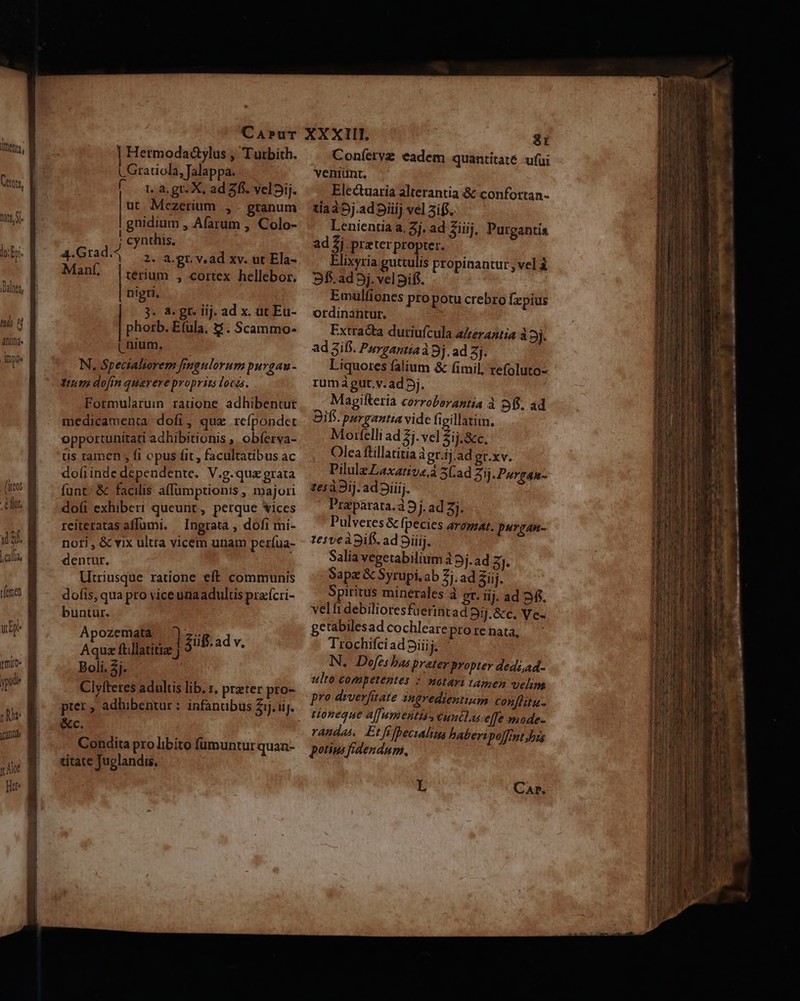 CAPUT XXXIII. 81
Hermodactylus, Turbith.
Gratiola, Jalappa.
1. a. gr. X, ad ʒß. vel ℈ij.
ut Mezerium, granum
gnidium, Asarum, Colo-
cynthis.
4. Grad. 2. a. gr. v. ad xv. ut Ela-
Manf. terium, cortex hellebor,
nigri,
3. a. gr. iij. ad x. ut Eu-
phorb. Esula, Scammo-
nium.
N. Specialiorem singulorum purgan-
tium dosin quærere propriis locis.
Formularum ratione adhibentur
medicamenta dosi, quæ respondet
opportunitati adhibitionis, observa-
tis tamen, si opus sit, facultatibus ac
dosi inde dependente. V. g. quæ grata
sunt & facilis assumptionis, majori
dosi exhiberi queunt, perque vices
reiteratas assumi. Ingrata, dosi mi-
nori, & vix ultra vicem unam persua-
dentur.
Utriusque ratione est communis
dosis, qua pro vice una adultis præscri-
buntur.
Apozemata
Aquæ stillatitiæ } ℥iiß. ad v.
Boli. ʒj.
Clysteres adultis lib. 1. præter pro-
pter, adhibentur: infantibus ℥ij. iij.
&c.
Condita pro libito sumuntur quan-
titate Juglandis.
Conservæ eadem quantitate usui
veniunt.
Electuaria alterantia & confortan-
tia à ℈j. ad ℈iiij vel ʒiß.
Lenientia a. ℥j. ad ℥iiij. Purgantia
ad ℥j. præter propter.
Elixyria guttulis propinantur, vel à
℈ß. ad ℈j. vel ℈iß.
Emulsiones pro potu crebro sæpius
ordinantur.
Extracta duriuscula alterantia à ℈j.
ad ʒiß. Purgantia à ℈j. ad ʒj.
Liquores salium & simil. resoluto-
rum à gut. v. ad ℈j.
Magisteria corroborantia à ℈ß. ad
℈iß. purgantia vide sigillatim.
Morselli ad ʒj. vel ʒij. &c.
Olea stillatitia à gr. ij. ad gr. xv.
Pilulæ Laxativa, à ʒß ad ʒij. Purgan-
tes à ℈ij. ad ℈iiij.
Præparata. à ℈j. ad ʒj.
Pulveres & species aromat. purgan-
tesve à ℈iß. ad ℈iiij.
Salia vegetabilium à ℈j. ad ʒj.
Sapæ & Syrupi, ab ℥j. ad ℥iij.
Spiritus minerales à gr. iij. ad ℈ß.
vel si debiliores fuerint ad ℈ij. &c. Ve-
getabiles ad cochleare pro re nata,
Trochisci ad ℈iiij.
N. Doses has præter propter dedi, ad-
ulto competentes: notari tamen velim
pro diversitate ingredientium constitu-
tioneque assumentis, cunctas esse mode-
randas. Et si specialius haberi possint, his
potius fidendum.
L CAP.